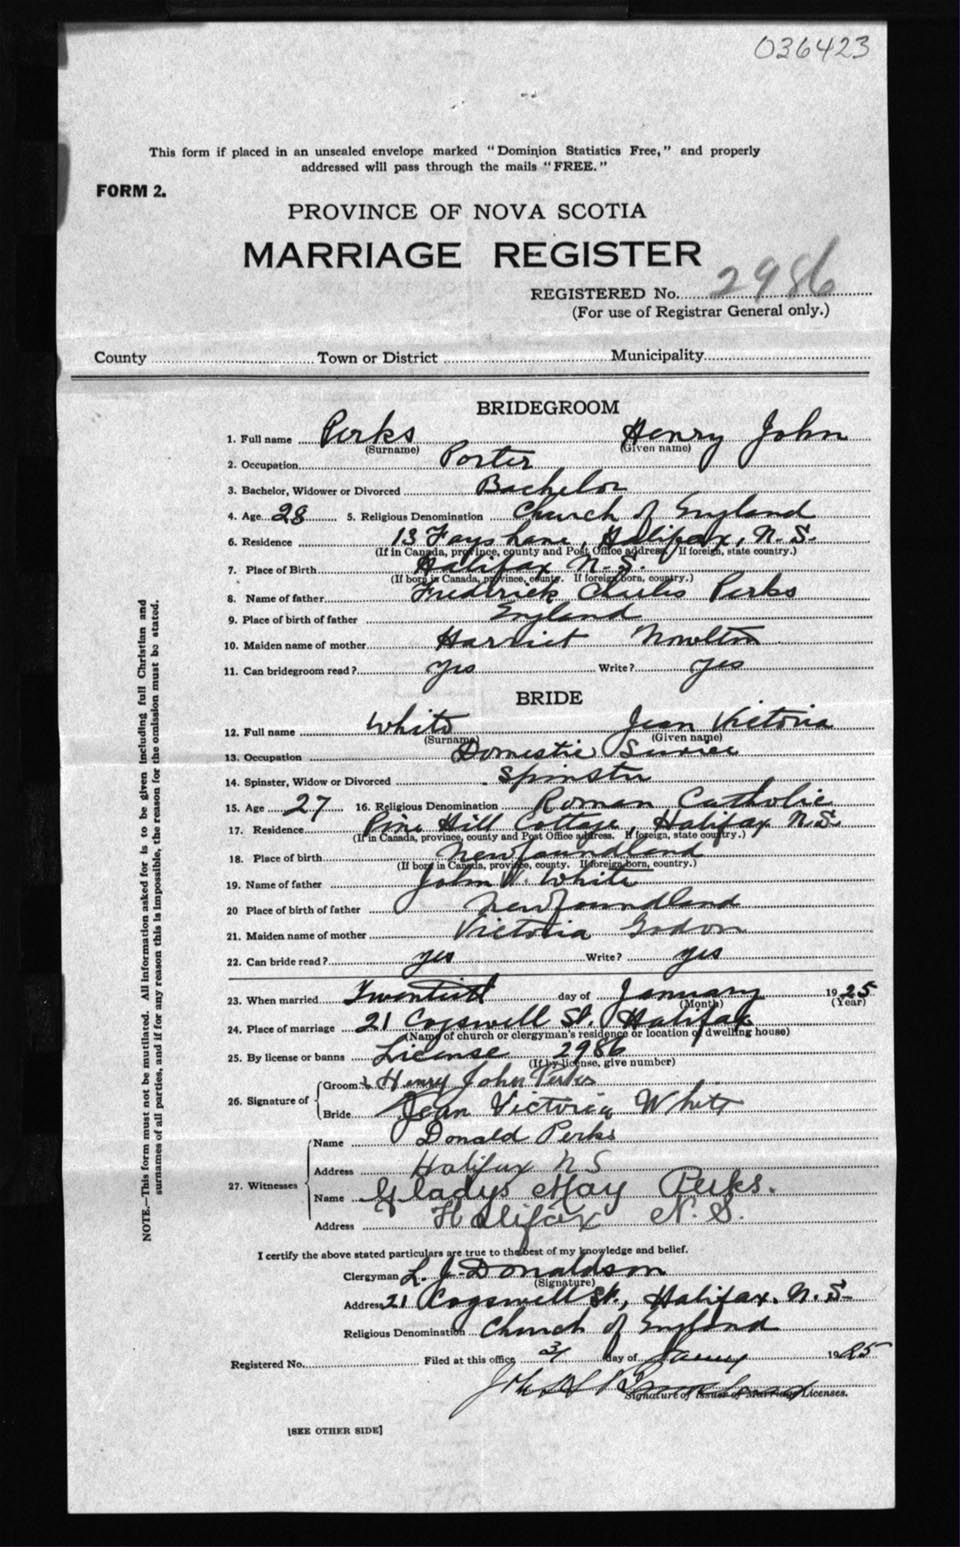 036423
This form if placed in an unsealed envelope marked "Dominion Statistics Free," and properly
addressed will pass through the mails "FREE."
FORM 2.
PROVINCE OF NOVA SCOTIA
MARRIAGE REGISTER
REGISTERED No. 2986
(For use of Registrar General only.)
County Town or District Municipality
BRIDEGROOM
1. Full name Perks Henry John
(Surname) (Given name)
2. Occupation Porter
3. Bachelor, Widower or Divorced Bachelor
4. Age 28 5. Religious Denomination Church of England
6. Residence 13 Fays Lane, Halifax, N.S.
(If in Canada, province, county and Post Office address. If foreign, state country.)
7. Place of Birth Halifax N.S.
(If born in Canada, province, county. If foreign born, country.)
8. Name of father Frederick Perks
9. Place of birth of father England
10. Maiden name of mother Harriet
11. Can bridegroom read? yes Write? yes
BRIDE
12. Full name White Jean Victoria
(Surname) (Given name)
13. Occupation Domestic Service
14. Spinster, Widow or Divorced Spinster
15. Age 27 16. Religious Denomination Roman Catholic
17. Residence Pine Hill Cottage, Halifax N.S.
(If in Canada, province, county and Post Office address. If foreign, state country.)
18. Place of birth Newfoundland
(If born in Canada, province, county. If foreign born, country.)
19. Name of father John W. White
20 Place of birth of father Newfoundland
21. Maiden name of mother Victoria
22. Can bride read? yes Write? yes
23. When married Twentieth day of January 1925
(Month) (Year)
24. Place of marriage 21 Cogswell St. Halifax
(Name of church or clergyman's residence or location of dwelling house)
25. By license or banns License 2986
(If by license, give number)
26. Signature of
Groom Henry John Perks
Bride Jean Victoria White
27. Witnesses
Name Donald Perks
Address Halifax N S
Name Gladys May Perks.
Address Halifax N.S.
I certify the above stated particulars are true to the best of my knowledge and belief.
Clergyman L. J. Donaldson
(Signature)
Address 21 Cogswell St., Halifax. N.S.
Religious Denomination Church of England
Registered No. Filed at this office day of 1925
Signature of Issuer of Marriage Licenses.
[SEE OTHER SIDE]
NOTE.—This form must not be mutilated. All information asked for is to be given including full Christian and
surnames of all parties, and if for any reason this is impossible, the reason for the omission must be stated.